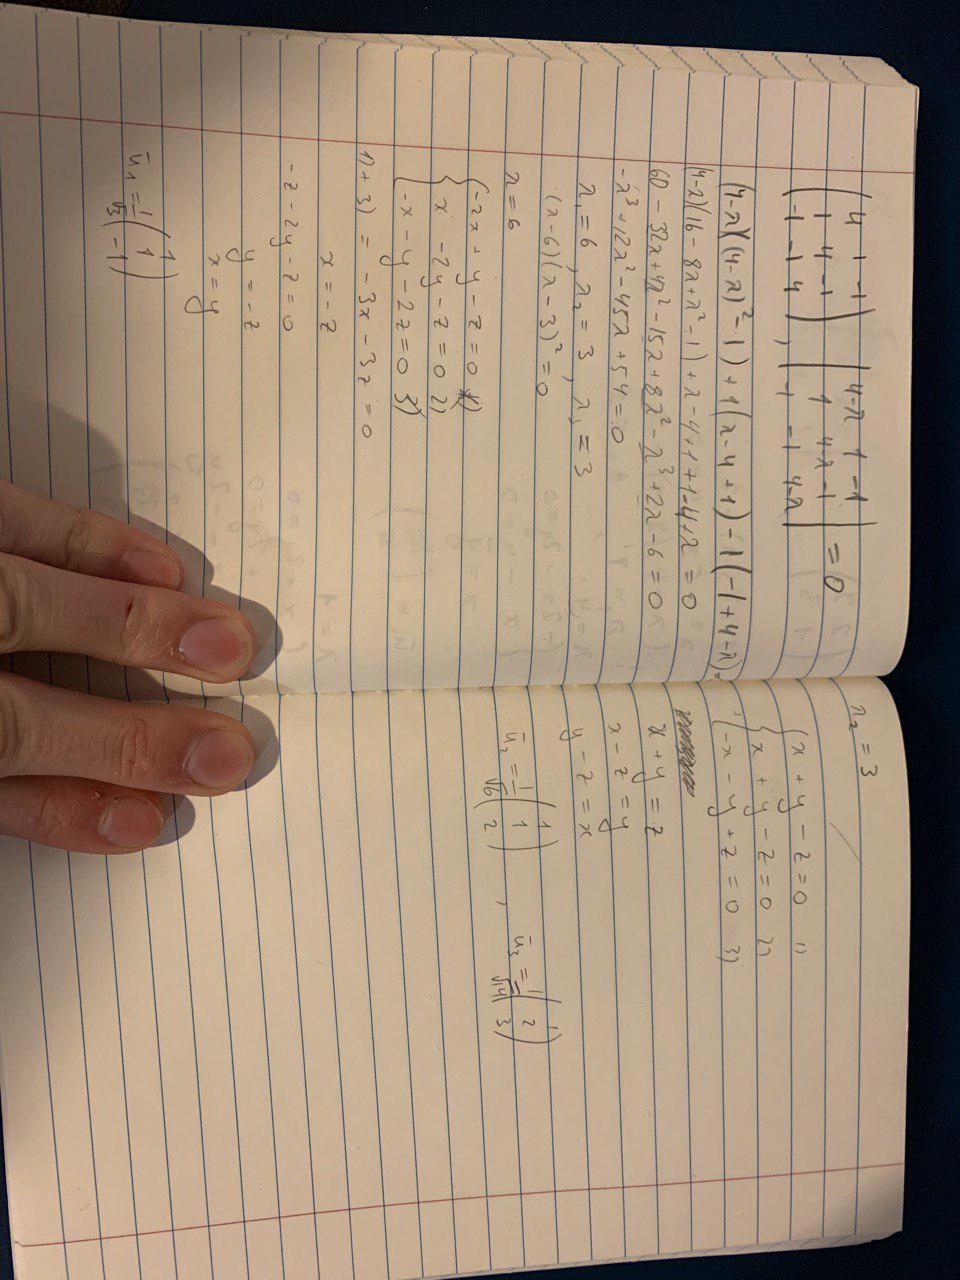 ( 4 1 -1 )
( 1 4 -1 ) , | 4-λ 1 -1 |
( -1 -1 4 ) | 1 4-λ -1 | = 0
| -1 -1 4-λ |
(4-λ)((4-λ)² - 1) + 1(λ - 4 + 1) - 1(-1 + 4 - λ)
(4-λ)(16 - 8λ + λ² - 1) + λ - 4 + 1 + 1 - 4 + λ = 0
60 - 32λ + 4λ² - 15λ + 8λ² - λ³ + 2λ - 6 = 0
-λ³ + 12λ² - 45λ + 54 = 0
λ₁ = 6 , λ₂ = 3 , λ₃ = 3
(λ - 6)(λ - 3)² = 0
λ = 6
{ -2x + y - z = 0 1)
{ x - 2y - z = 0 2)
{ -x - y - 2z = 0 3)
1) + 3) = -3x - 3z = 0
x = -z
-z - 2y - z = 0
y = -z
x = y
ū₁ = 1/√3 ( 1 1 -1 )
λ₂ = 3
{ x + y - z = 0 1)
{ x + y - z = 0 2)
{ -x - y + z = 0 3)
x + y = z
x - z = y
y - z = x
ū₂ = 1/√6 ( 1 1 2 ) , ū₃ = 1/√14 ( 1 2 3 )